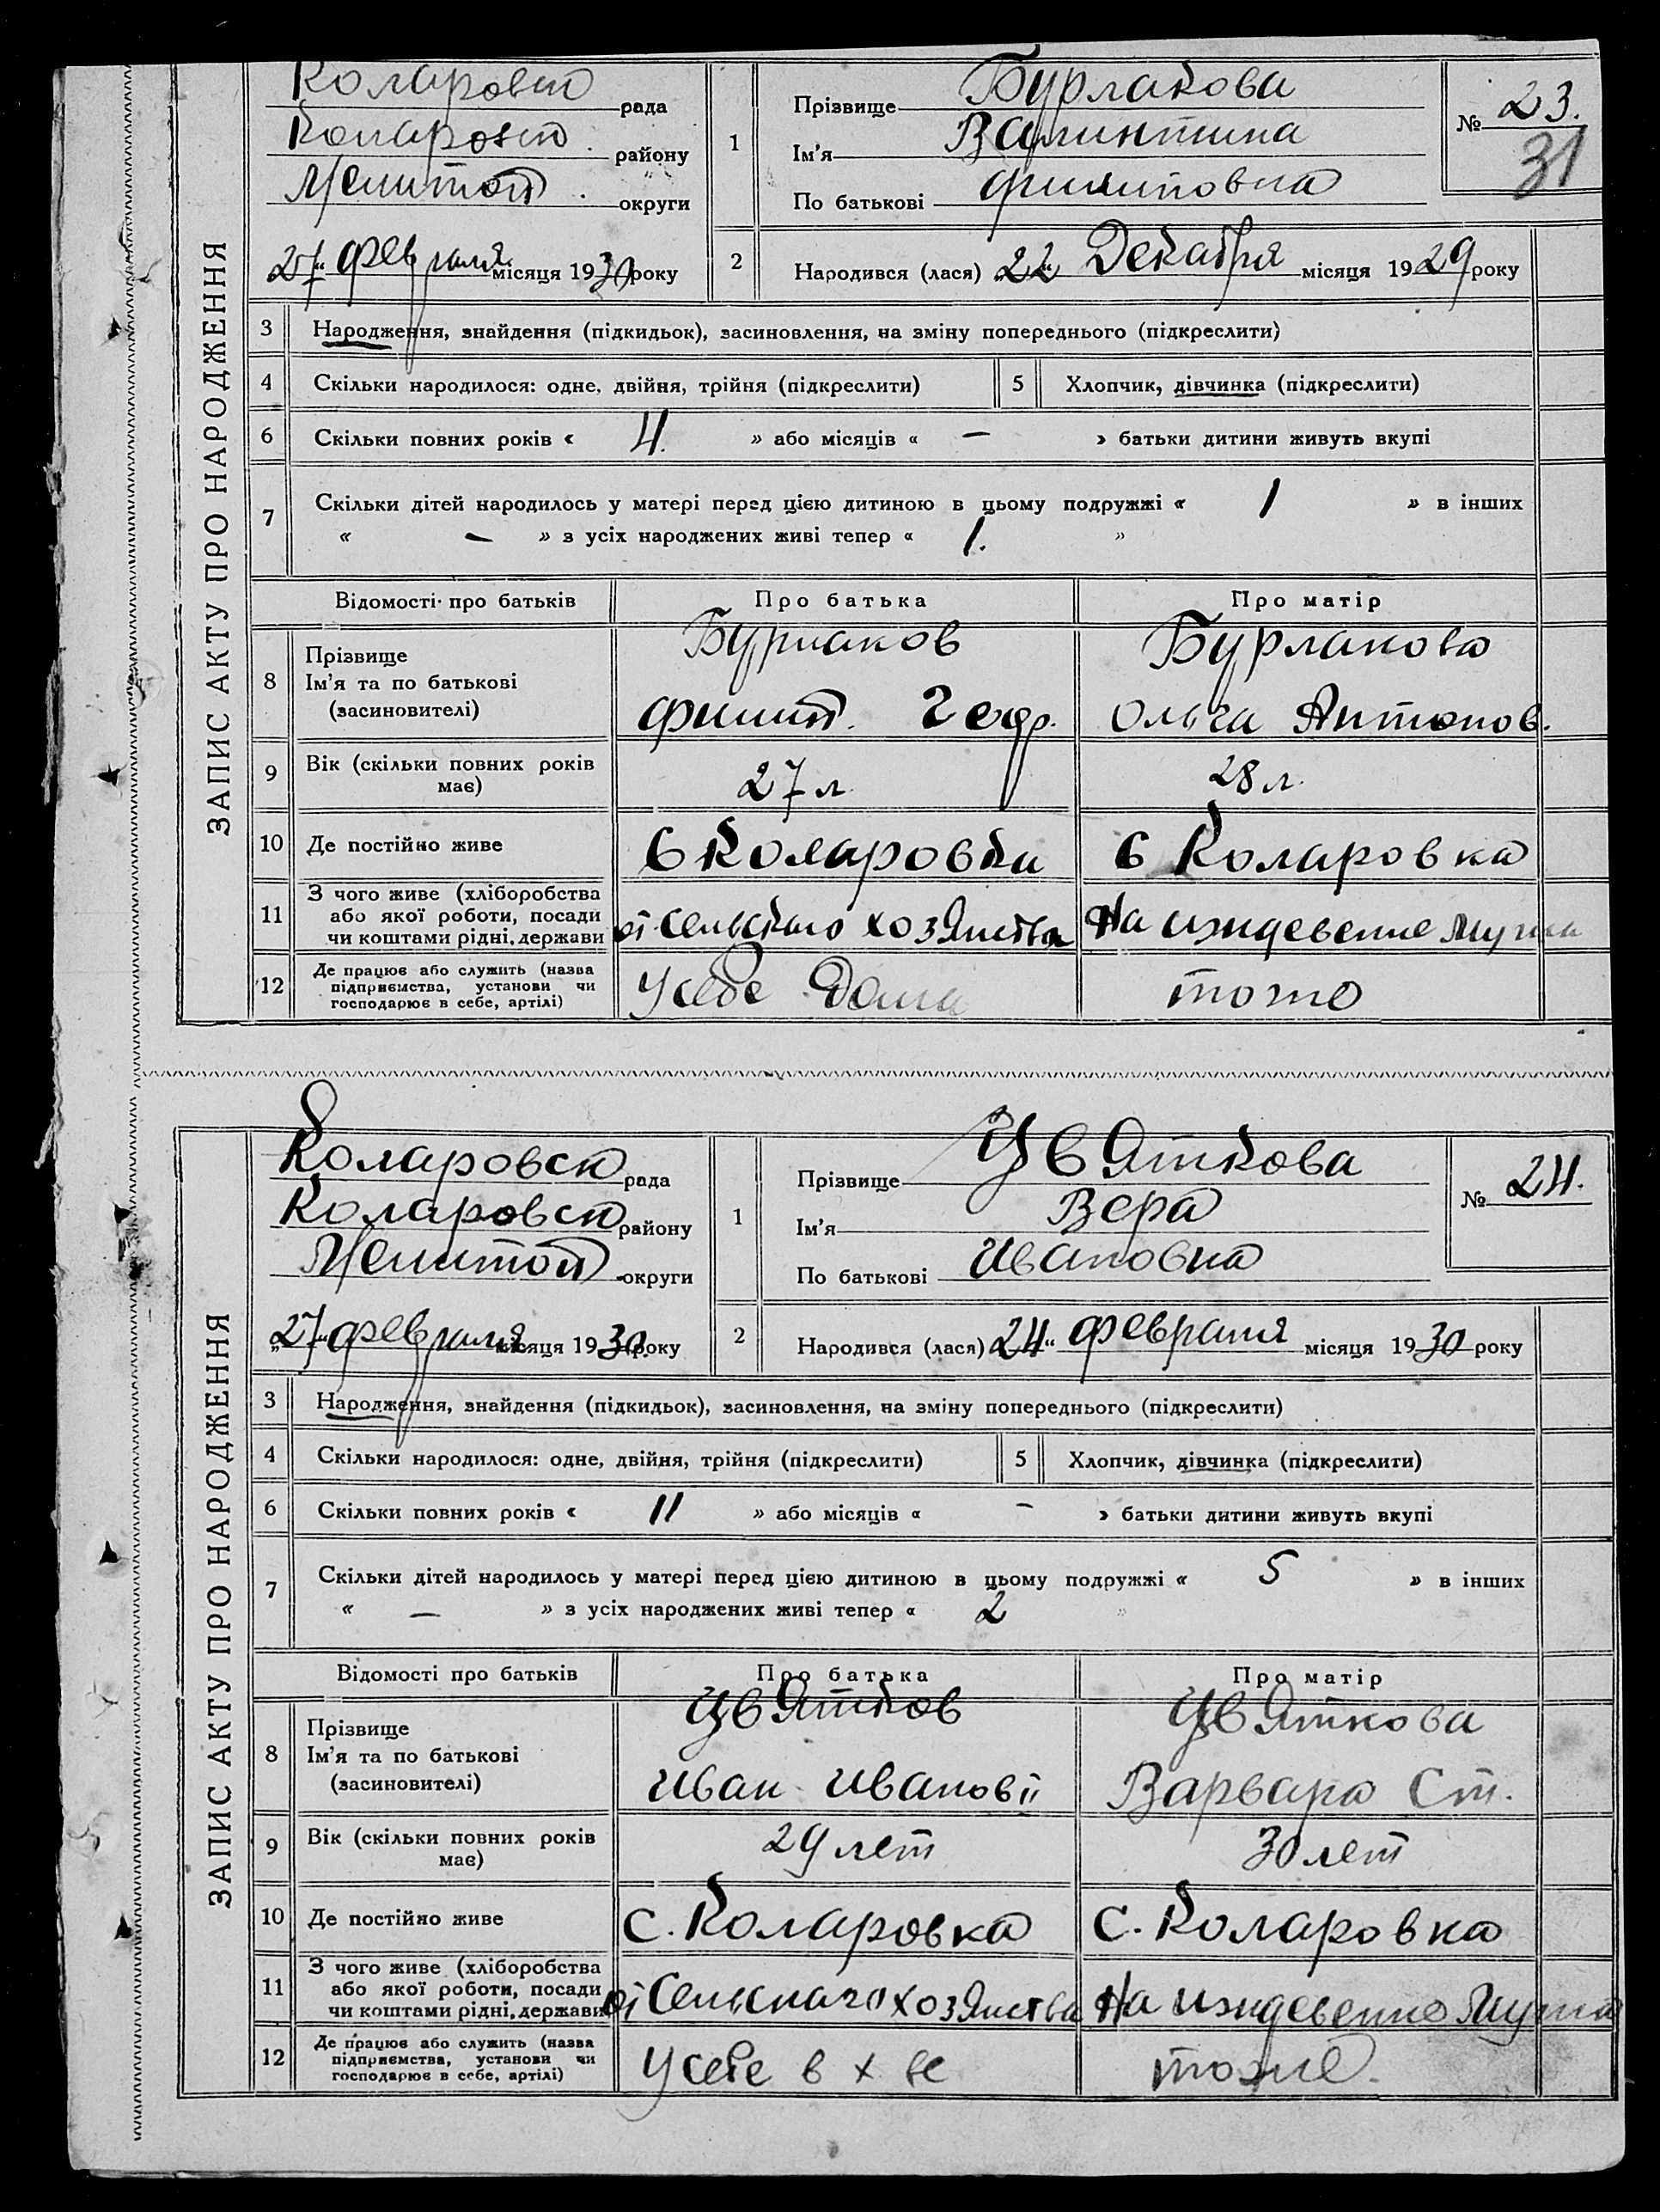 ЗАПИС АКТУ ПРО НАРОДЖЕННЯ
Коларовск рада
Коларовск. району
Мелитоп. округи
27 февраля місяця 1930 року
1 Прізвище Бурлакова
Ім'я Валинтина
По батькові Филиповна
№ 23.
31
2 Народився (лася) 22 Декабря місяця 1929 року
3 Народження, знайдення (підкидьок), засиновлення, на зміну попереднього (підкреслити)
4 Скільки народилося: одне, двійня, трійня (підкреслити) 5 Хлопчик, дівчинка (підкреслити)
6 Скільки повних років « 4. » або місяців « – » батьки дитини живуть вкупі
7 Скільки дітей народилось у матері перед цією дитиною в цьому подружжі « 1 » в інших
« – » з усіх народжених живі тепер « 1. »
Відомості про батьків Про батька Про матір
8 Прізвище Ім'я та по батькові (засиновителі)
Бурлаков Бурлакова
Филип. Ольга Антонов.
9 Вік (скільки повних років має) 27 л 28 л.
10 Де постійно живе С Коларовка С Коларовка
11 З чого живе (хліборобства або якої роботи, посади чи коштами рідні, держави
от сельскаго хозяиства На иждевение мужа
12 Де працює або служить (назва підприємства, установи чи господарює в себе, артілі)
У себе Дома тоже
ЗАПИС АКТУ ПРО НАРОДЖЕННЯ
Коларовск рада
Коларовск району
Мелитоп. округи
„27“ февраля місяця 1930 року
1 Прізвище Цвяткова
Ім'я Вера
По батькові Ивановна
№ 24.
2 Народився (лася) 24“ февраля місяця 1930 року
3 Народження, знайдення (підкидьок), засиновлення, на зміну попереднього (підкреслити)
4 Скільки народилося: одне, двійня, трійня (підкреслити) 5 Хлопчик, дівчинка (підкреслити)
6 Скільки повних років « 11 » або місяців « – » батьки дитини живуть вкупі
7 Скільки дітей народилось у матері перед цією дитиною в цьому подружжі « 5 » в інших
« – » з усіх народжених живі тепер « 2 »
Відомості про батьків Про батька Про матір
8 Прізвище Ім'я та по батькові (засиновителі)
Цвятков Цвяткова
Иван Иванов Варвара Ст.
9 Вік (скільки повних років має) 29 лет 30 лет
10 Де постійно живе С. Коларовка С. Коларовка
11 З чого живе (хліборобства або якої роботи, посади чи коштами рідні, держави
от Сельскаго хозяиства На иждевение Мужа
12 Де працює або служить (назва підприємства, установи чи господарює в себе, артілі)
У себе в х ве тоже.